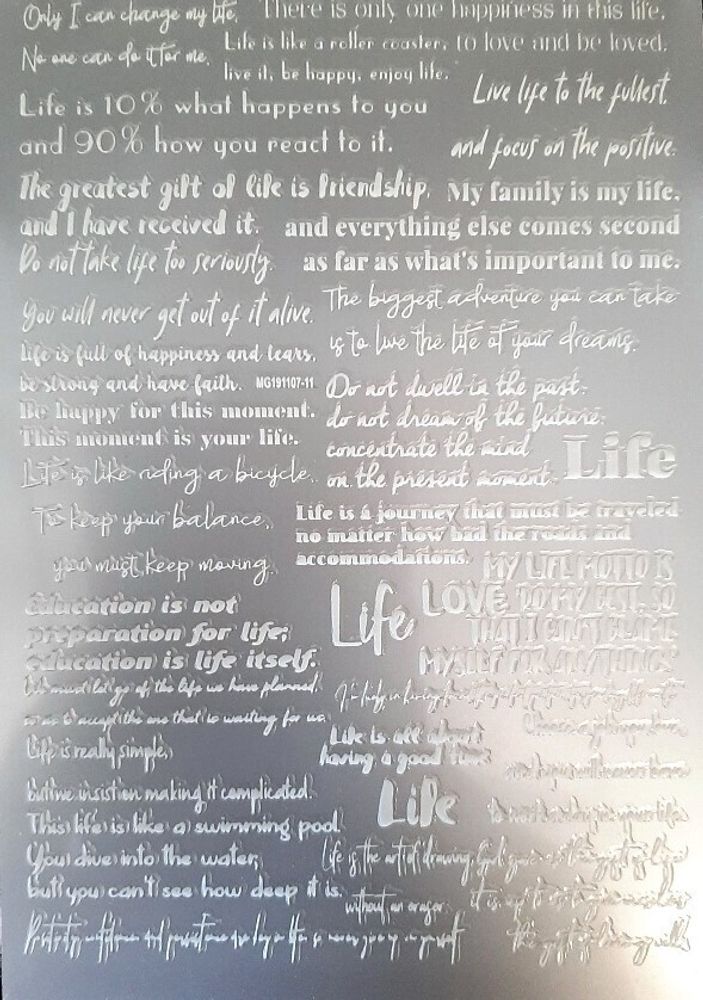 Only I can change my life.
No one can do it for me.
There is only one happiness in this life,
to love and be loved.
Life is like a roller coaster,
live it, be happy, enjoy life.
Live life to the fullest,
and focus on the positive.
Life is 10% what happens to you
and 90% how you react to it.
The greatest gift of life is friendship,
and I have received it.
My family is my life,
and everything else comes second
as far as what's important to me.
Do not take life too seriously.
You will never get out of it alive.
The biggest adventure you can take
is to live the life of your dreams.
Life is full of happiness and tears,
be strong and have faith.
MG191107-11
Be happy for this moment.
This moment is your life.
Do not dwell in the past,
do not dream of the future,
concentrate the mind
on the present moment.
Life
Life is like riding a bicycle.
To keep your balance,
you must keep moving.
Life is a journey that must be traveled
no matter how bad the roads and
accommodations.
Education is not
preparation for life;
education is life itself.
Life
LOVE
MY LIFE MOTTO IS
DO MY BEST, SO
THAT I CAN'T BLAME
MYSELF FOR ANYTHING
We must let go of the life we have planned,
so as to accept the one that is waiting for us.
Life is really simple,
but we insist on making it complicated.
Life is all about
having a good time
Choose a job you love,
and you will never have
to work a day in your life
Life
This life is like a swimming pool.
You dive into the water,
but you can't see how deep it is.
Life is the art of drawing
without an eraser.
God gave us the gift of life
it is up to us to give ourselves
the gift of living well